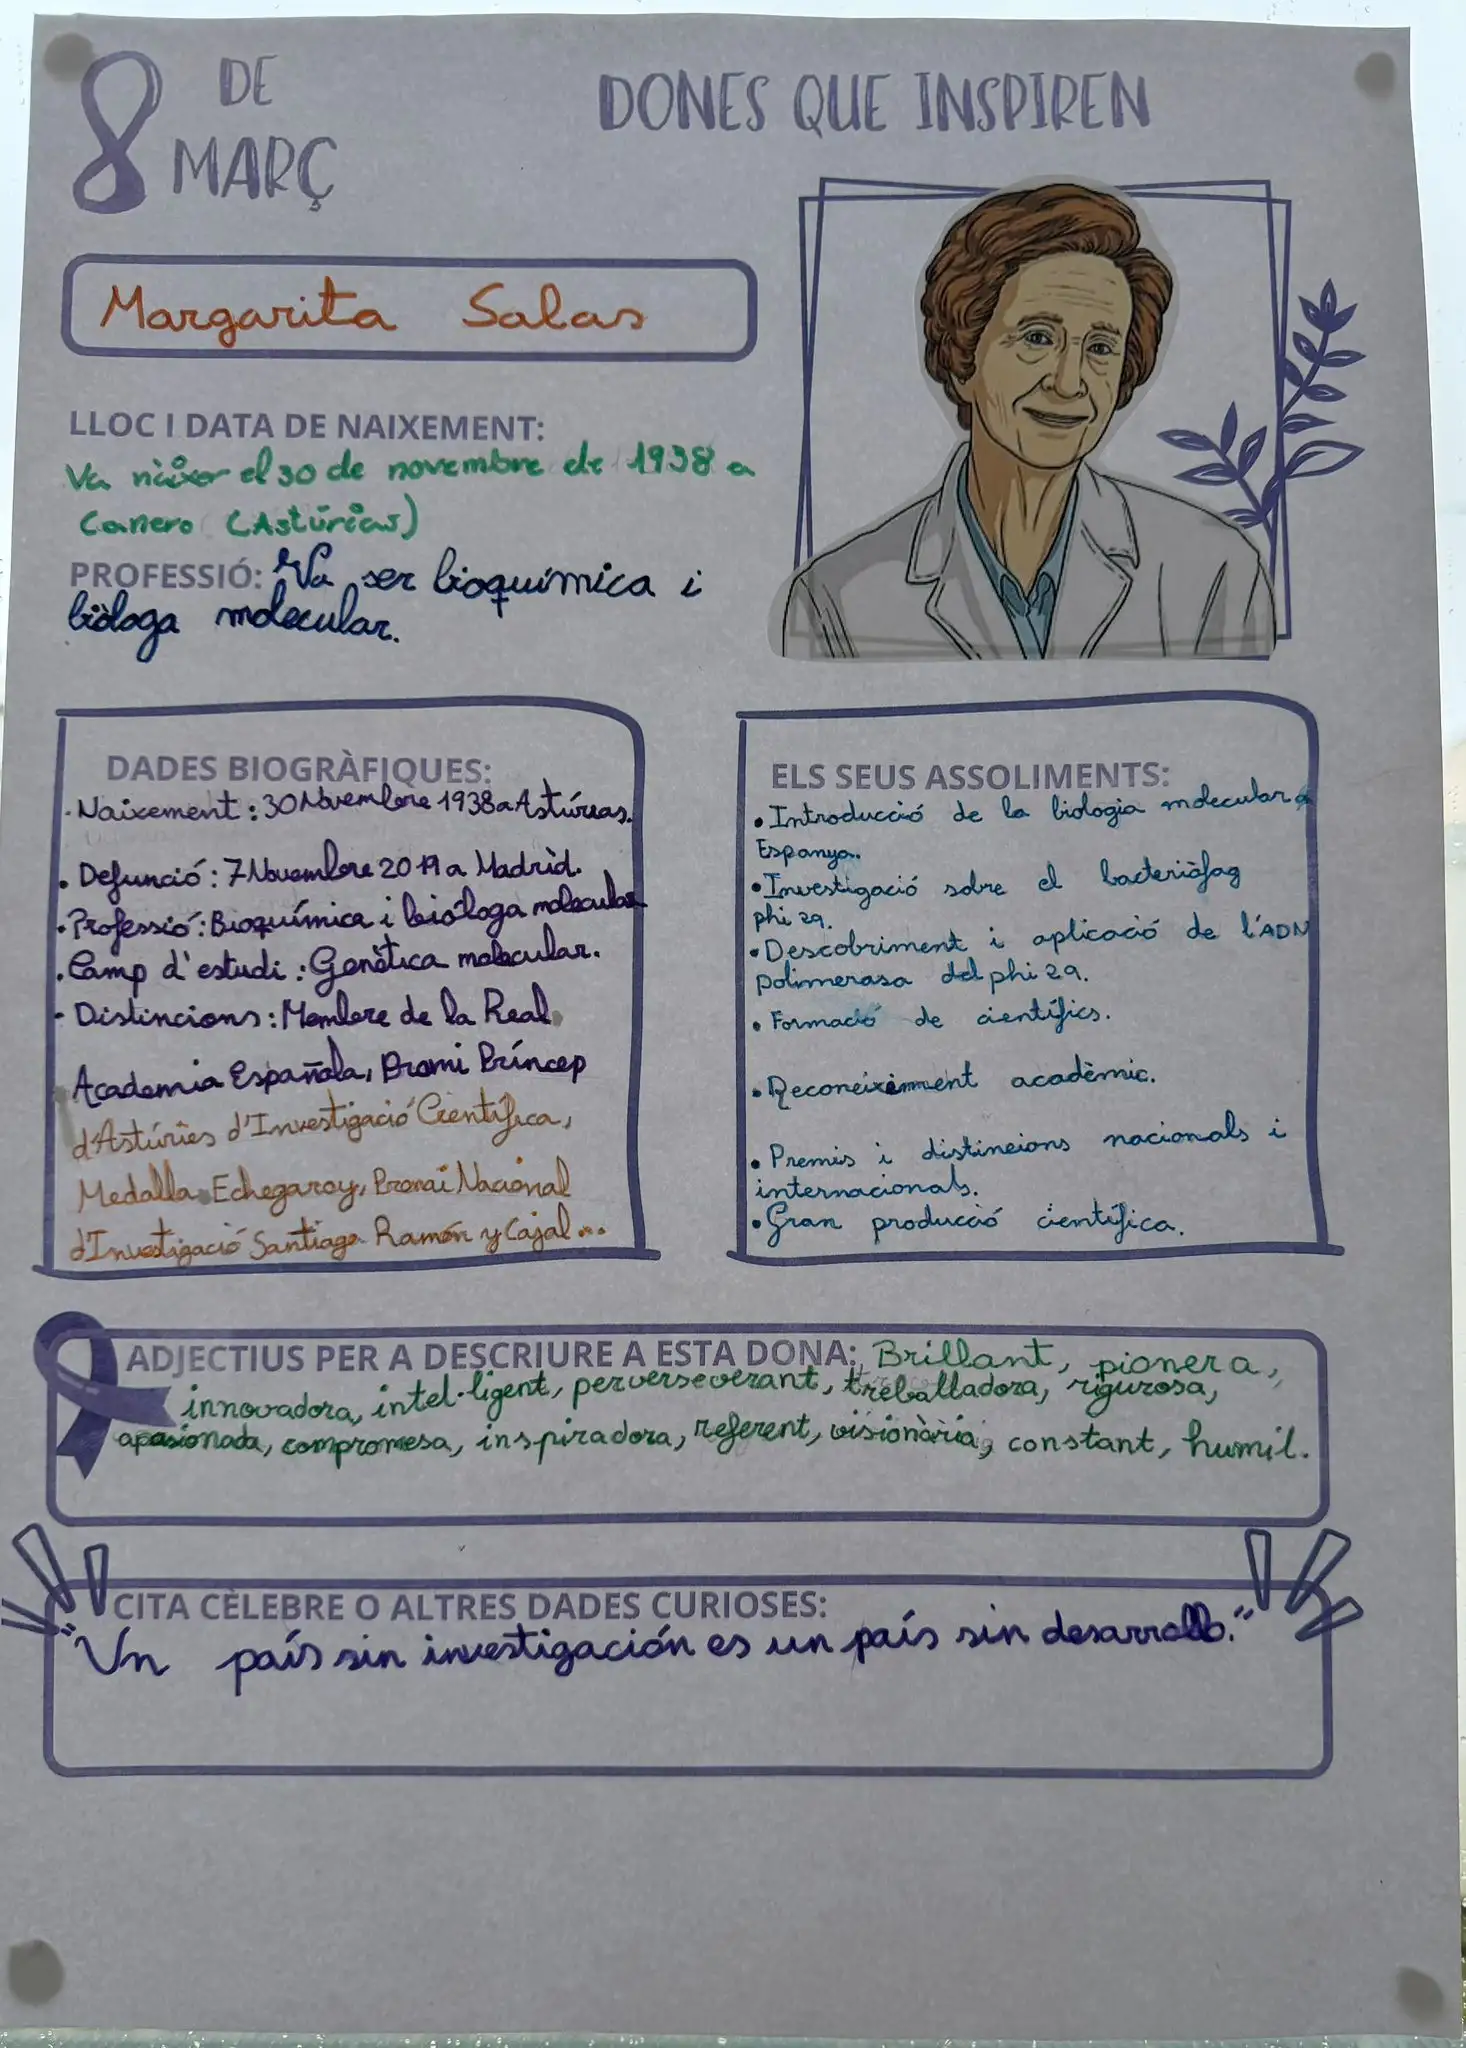 8 DE MARÇ
DONES QUE INSPIREN
Margarita Salas
LLOC I DATA DE NAIXEMENT:
Va nàixer el 30 de novembre de 1938 a
Canero (Astúries)
PROFESSIÓ: Va ser bioquímica i
biòloga molecular.
DADES BIOGRÀFIQUES:
· Naixement : 30 Novembre 1938 a Astúries.
· Defunció : 7 Novembre 2019 a Madrid.
· Professió : Bioquímica i biòloga molecular
· Camp d'estudi : Genètica molecular.
- Distincions : Membre de la Real
Academia Española, Premi Príncep
d'Astúries d'Investigació Científica,
Medalla Echegaray, Premi Nacional
d'Investigació Santiago Ramón y Cajal...
ELS SEUS ASSOLIMENTS:
• Introducció de la biologia molecular a
Espanya.
• Investigació sobre el bacteriòfag
phi 29.
• Descobriment i aplicació de l'ADN
polimerasa del phi 29.
• Formació de científics.
• Reconeixement acadèmic.
• Premis i distincions nacionals i
internacionals.
• Gran producció científica.
ADJECTIUS PER A DESCRIURE A ESTA DONA: Brillant, pionera,
innovadora, intel·ligent, perverseverant, treballadora, rigurosa,
apasionada, compromesa, inspiradora, referent, visionària, constant, humil.
CITA CÈLEBRE O ALTRES DADES CURIOSES:
"Un país sin investigación es un país sin desarrollo."